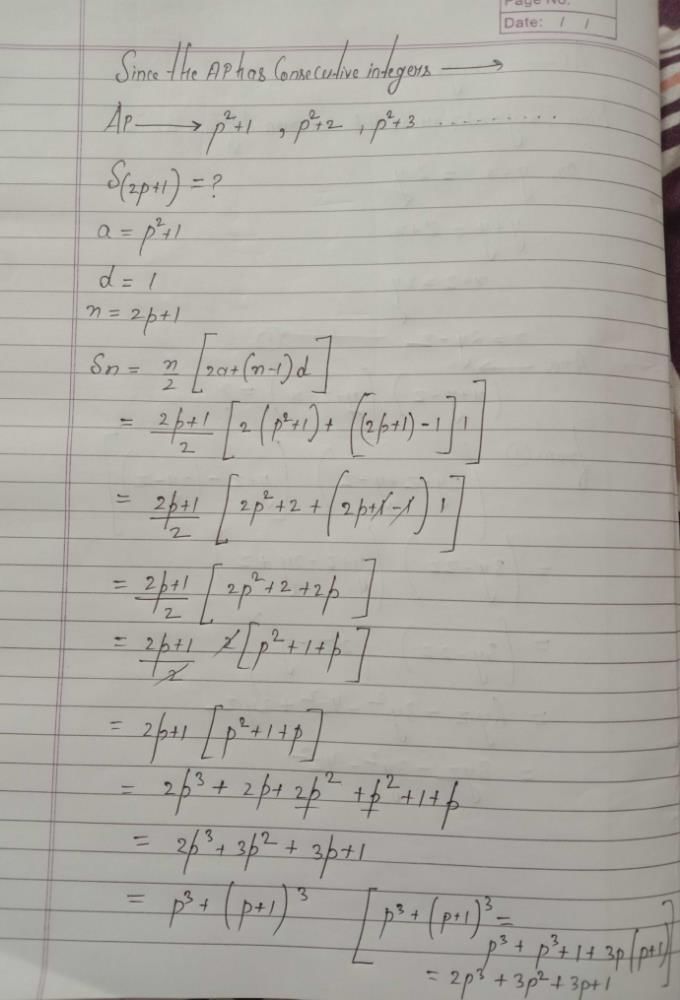 Page No.
Date: / /
Since the AP has Consecutive integers ⟶
AP ⟶ p²+1 , p²+2 , p²+3 ..........
S(2p+1) = ?
a = p²+1
d = 1
n = 2p+1
Sn = n/2 [2a+(n-1)d]
= 2p+1/2 [2(p²+1)+((2p+1)-1]1]
= 2p+1/2 [2p²+2+(2p+1-1)1]
= 2p+1/2 [2p²+2+2p]
= 2p+1/2 2[p²+1+p]
= 2p+1 [p²+1+p]
= 2p³+2p+2p²+p²+1+p
= 2p³+3p²+3p+1
= p³+(p+1)³ [p³+(p+1)³ =
p³+p³+1+3p(p+1)
= 2p³+3p²+3p+1]